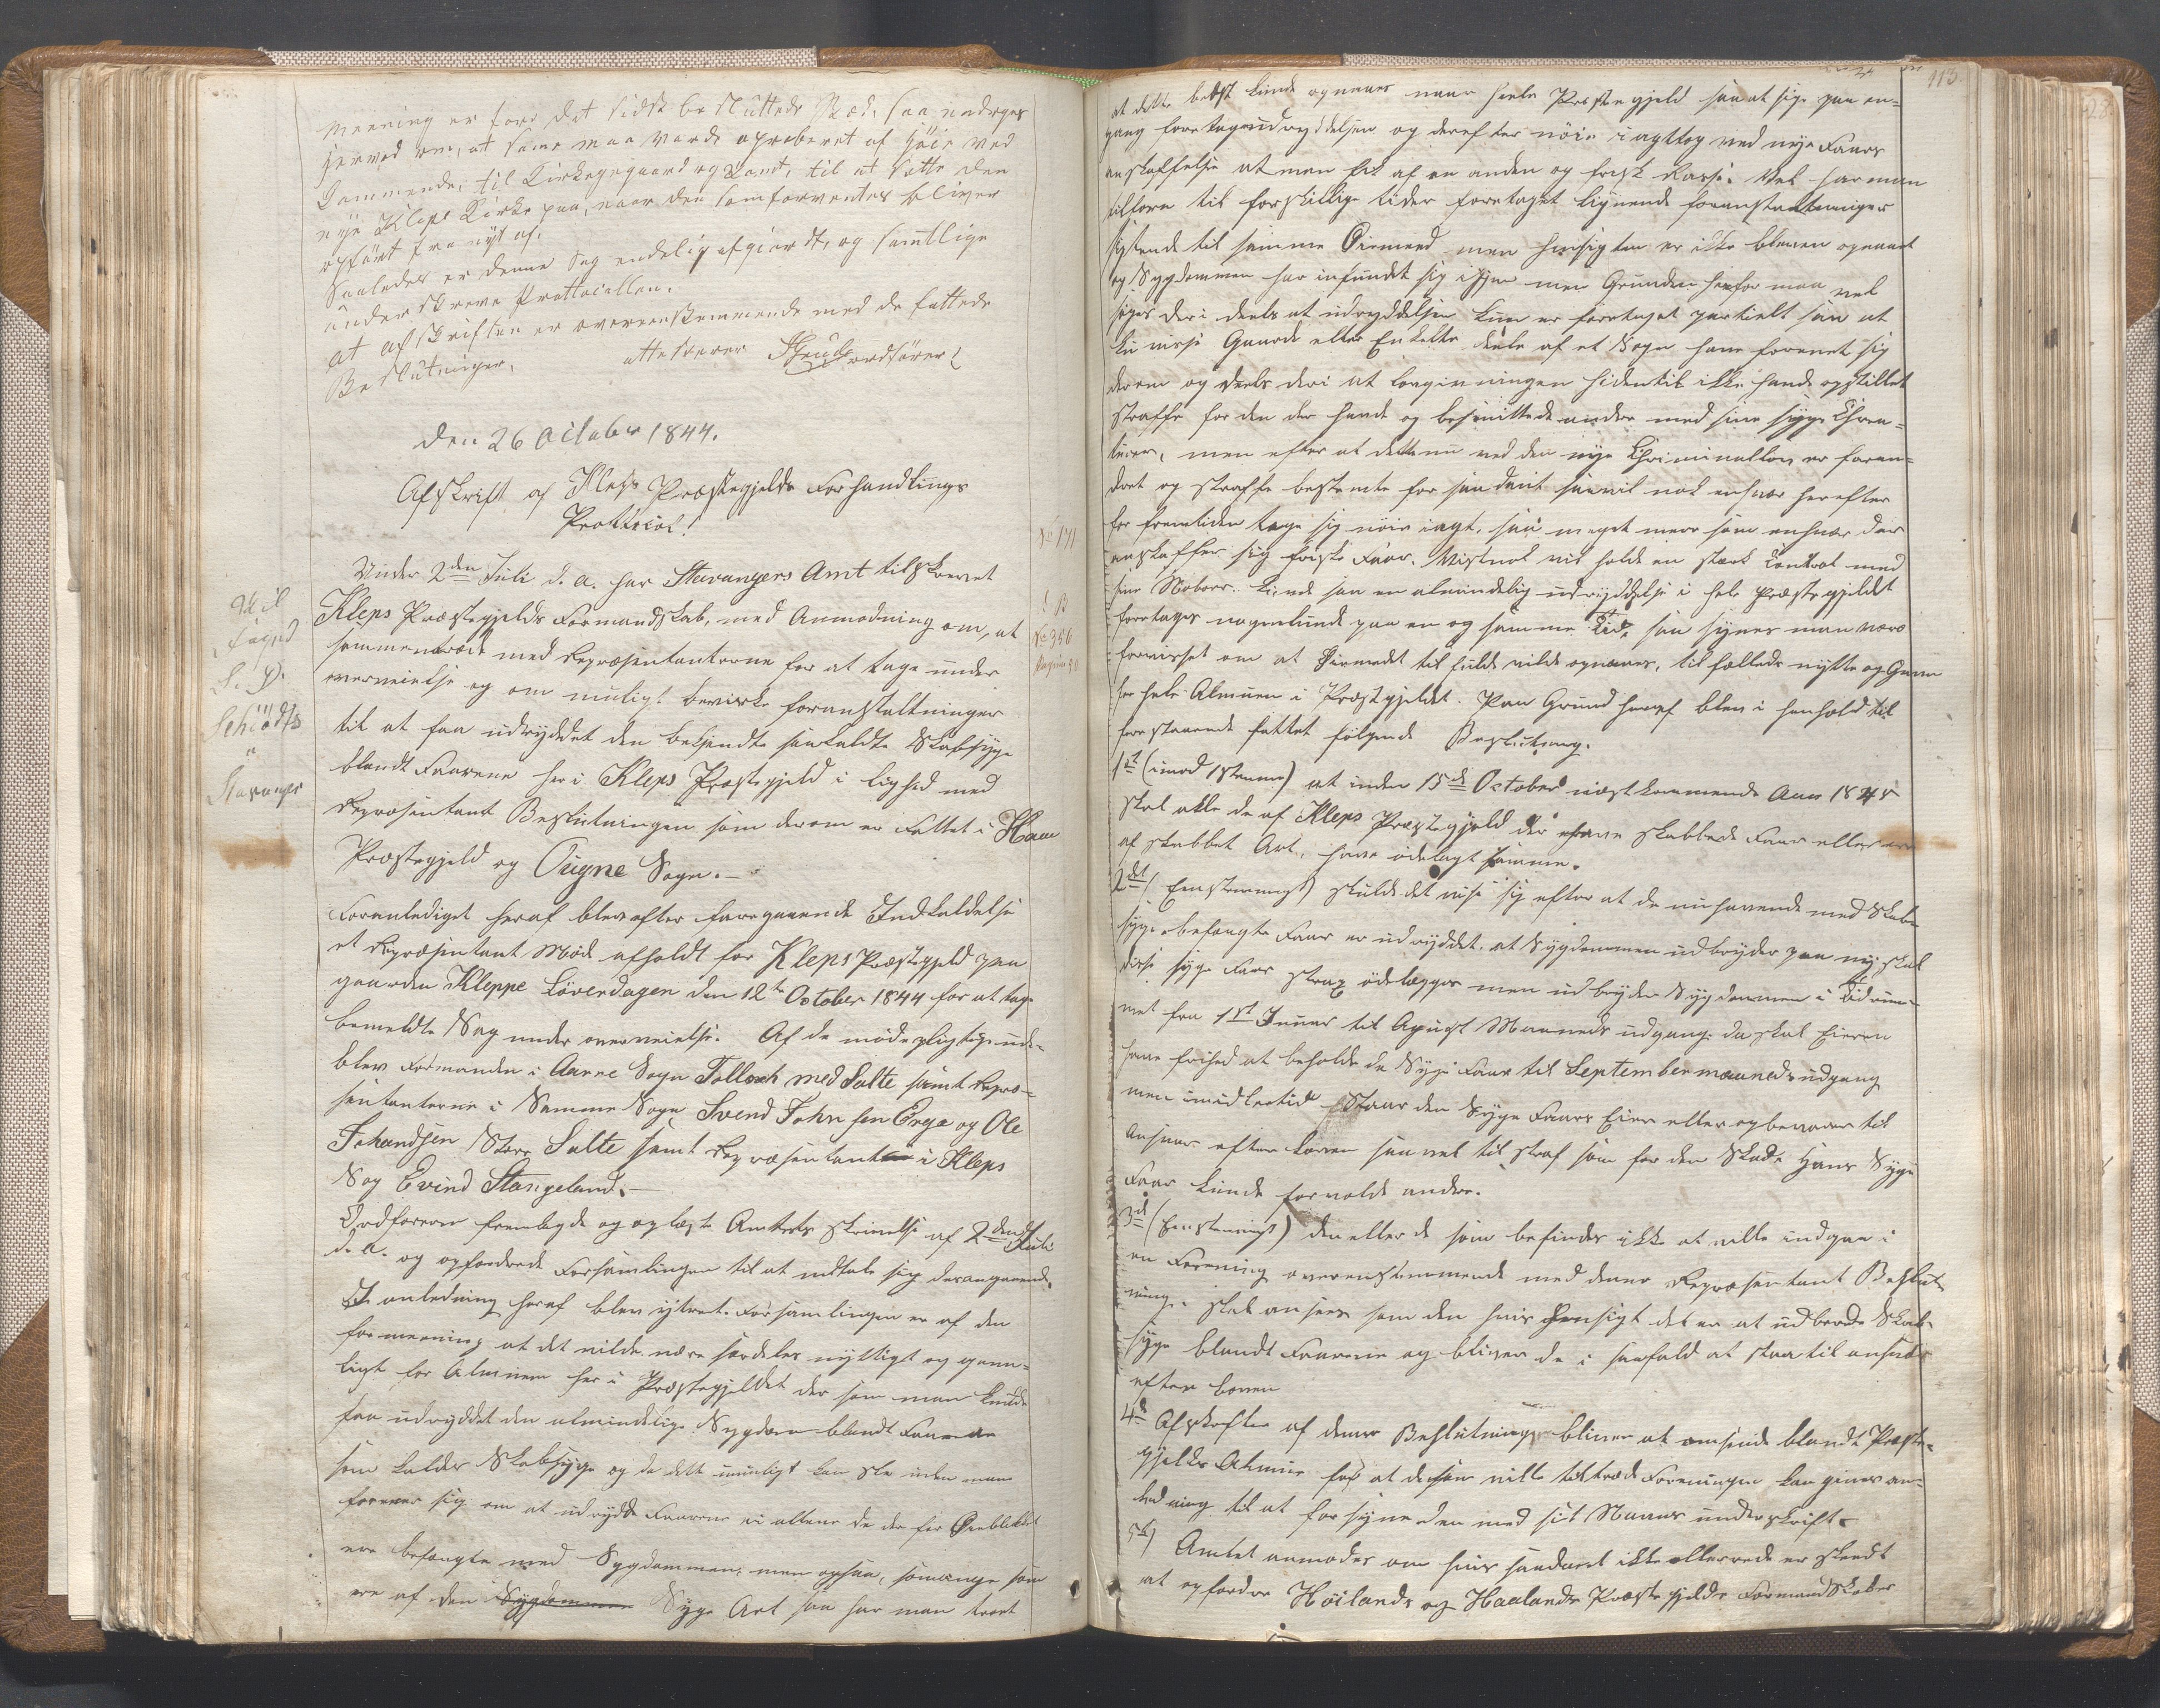 meening er ford det sidst besluttede Sted, saa andrages
herved om, at samme maa vorde aproberet af høie ved
kommende, til Kirkegaard og Tomt, til at sætte den
nye Kleps Kirke paa, naar den som forventes bliver
opført fra nyt af.
Saaledes er denne Sag endelig afgiordt, og samtlige
underskreve Prottocollen.
at afskriften er overeenstemmende med de fattede
Beslutninger,
attesterer
ordfører
Den 26 October 1844.
Afskrift af Kleps Præstegjelds Forhandlings
Prottocol!
Under 2den Juli d. a. har Stavangers Amt tilskrevet
Kleps Præstegjelds Formandskab, med Anmodning om, at
sammentræde med Repræsentanterne for at tage under
overveielse og om muligt bevirke foranstaltninger
til at faa udryddet den bekjendte saakaldte Skabsyge
blandt Faarene her i Kleps Præstegjeld i lighed med
Repræsentant Beslutningen som derom er fattet i Haae
Præstegjeld og Ougne Sogn.
Foranlediget heraf blev efter foregaaende Indkaldelse
et Repræsentant Møde afholdt for Kleps Præstegjeld paa
gaarden Kleppe Løverdagen den 12te October 1844 for at tage
bemeldte Sag under overveielse. Af de mødepligtige ude-
blev Formanden i Aarre Sogn Tollach med Salte samt Repræ-
sentanterne i Samme Sogn Svend Johnsen Erga og Ole
Johandsen Store Salte samt Repræsentant i Kleps
Sogn Evind Stangeland.
Ordføreren fremlagde og oplæste Amtets skrivelse af 2den Juli
d. a. og opfordrede Forsamlingen til at udtale sig desangaaende.
I anledning heraf blev ytret. Forsamlingen er af den
formeening at det vilde være særdeles nyttigt og gavn-
ligt for Almuen her i Præstegjeldet dersom man kunde
faa udryddet den almindelige Sygdom blandt Faarene
som kaldes Skabsyge og da dette umuligt kan skee uden man
forener sig om at udrydde Faarene ei allene de der for Øieblikket
ere befængte med Sygdommen, men ogsaa, somange som
ere af den Sygdommen Syge Art saa har man troet
No 171
No 356
Pagina 30
Til
Foged
Schiødts
a
Stavanger
113.
at dette bedst kunde opnaaes naar heele Præstegjeld saa at sige paa en-
gang foretage udryddelsen og derefter nøie iagttog ved nye Faars
anskaffelse at man fik af en anden og frisk Rase. Vel har man
tilforn til forskillige tider foretaget lignende foranstaltninger
sigtende til samme Øiemeed men hensigten er ikke bleven opnaaet
og Sygdommen har infundet sig igjen men Grunden herfor maa vel
søges deri deels at udryddelsen kun er foretaget partielt saa at
kun visse Gaarde eller Enkelte deele af et Sogn have forenet sig
derom og deels deri at lovgivningen hidentil ikke havde opstillet
Straffe for den der havde og besmittede andre med sine syge Chrea-
turer, men efter at dette nu ved den nye Chriminallov er foran-
dret og straffe bestemte for saadant saa vil nok enhver herefter
for fremtiden tage sig nøie iagt, saa meget mere som enhver der
anskaffer sig friske Faar, Vistnok vil holde en stærk Control med
sine Naboer. Kunde saa en almindelig udryddelse i hele Præstegjeldet
foretages nogenlunde paa en og samme Tid, saa synes man være
forvisset om at Øiemedet til fulde vilde opnaaes, til fælleds nytte og Gavn
for hele Almuen i Præstegjeldet. Paa Grund heraf blev i henhold til
forestaaende fattet følgende Beslutning.
1st (imod 1 Stemme) at inden 15de October næstkommende Aar 1845
skal alle de af Kleps Præstegjeld der have skabbede Faar eller ere
af skabbet Art, have ødelagt samme.
2det (Eenstemmigt) skulde det vise sig efter at de nu havende med Skab-
syge befængte Faar er udryddet, at Sygdommen udbryder paa ny skal
disse syge Faar strax ødelægges men udbryder Sygdommen i Tidrum-
met fra 1st Januar til August Maaneds udgang da skal Eieren
have frihed at beholde de Syge Faar til September maaneds udgang
men imidlertid Staar den Syge Faars Eier eller opbevarer til
Ansvar efter Loven saavel til straf som for den Skade Hans Syge
Faar kunde forvolde andre.
3de (Eenstemmigt) den eller de som befindes ikke at ville indgaae i
en Forening overeenstemmende med denne Repræsentant Beslut-
ning, skal ansees som den hvis Hensigt det er at udbrede Skab-
syge blandt Faarene og bliver de i saafald at staa til ansvar
efter Loven
4de Afskrifter af denne Beslutning bliver at omsende blandt Præste-
gjelds Almue for at de som ville tiltræde Foreningen kan gives an-
ledning til at forsyne den med sit Navns underskrift.
5te) Amtet anmodes om hvis saadant ikke allerede er skeedt
at opfordre Høilands og Haalands Præstegjelds Formandskaber